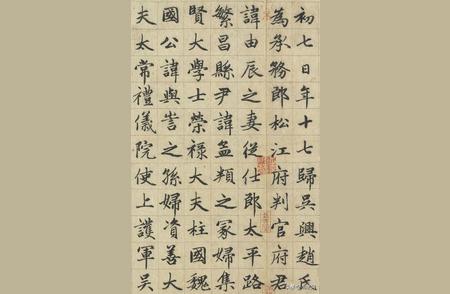 初七日年十七歸吳興趙氏
為承務郎松江府判官府君
諱由辰之妻從仕郎太平路
繁昌縣尹諱孟頖之冢婦集
賢大學士榮祿大夫柱國魏
國公諱與訔之孫婦資善大
夫太常禮儀院使上護軍吳